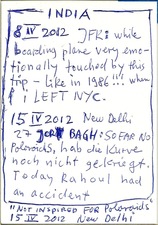 INDIA
8 IV 2012 JFK: while
boarding plane very emo-
tionally touched by this
trip – like in 1986!!! when
I LEFT NYC.
15 IV 2012 New Delhi
27 JOR BAGH: SO FAR NO
Polaroids, hab die Kurve
noch nicht gekriegt.
Today Rahoul had
an accident
"NOT INSPIRED FOR POLAROIDS"
15 IV 2012 New Delhi